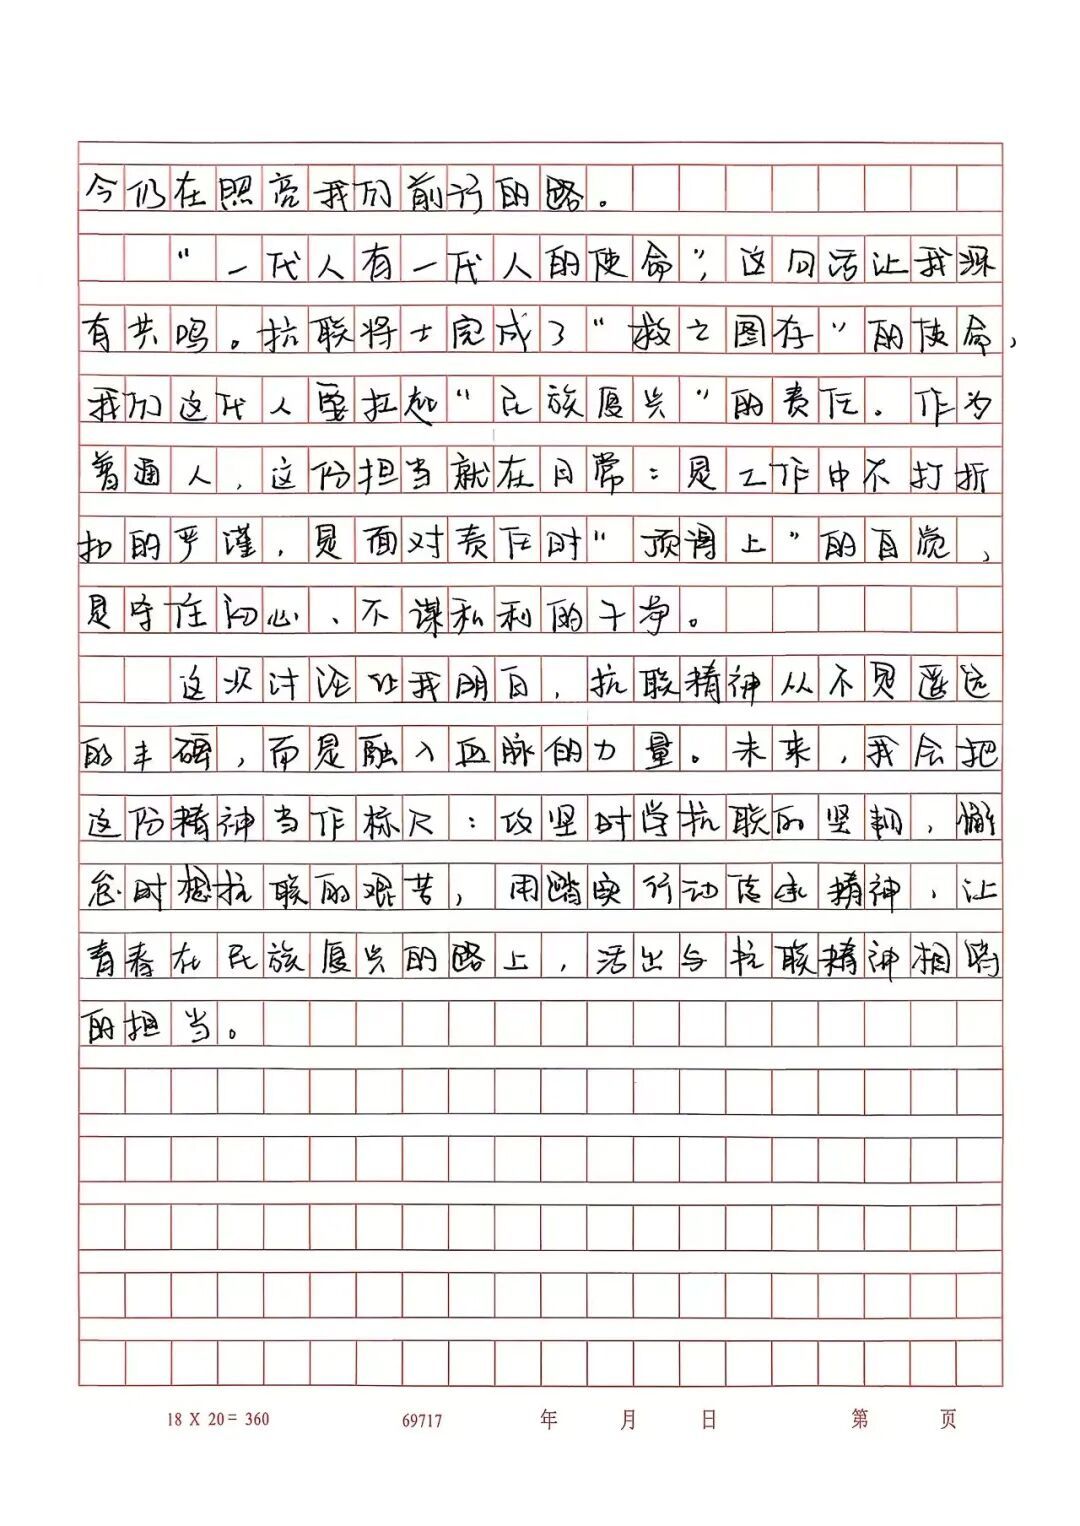 今仍在照亮我们前行的路。
“一代人有一代人的使命”，这句话让我深
有共鸣。抗联将士完成了“救亡图存”的使命，
我们这代人要扛起“民族复兴”的责任。作为
普通人，这份担当就在日常：是工作中不打折
扣的严谨，是面对责任时“顶得上”的自觉，
是守住初心、不谋私利的干净。
这次讨论让我明白，抗联精神从不是遥远
的丰碑，而是融入血脉的力量。未来，我会把
这份精神当作标尺：攻坚时学抗联的坚韧，懈
怠时想抗联的艰苦，用踏实行动传承精神，让
青春在民族复兴的路上，活出与抗联精神相称
的担当。
18 X 20 = 360 69717 年 月 日 第 页